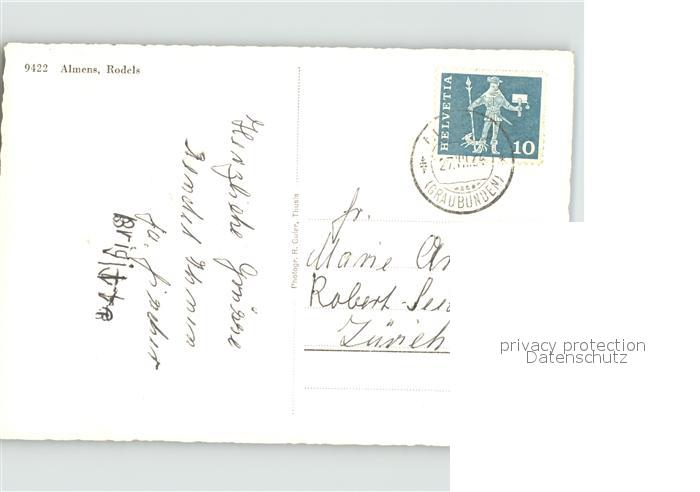 9422 Almens, Rodels
Herzliche Grüsse
sendet Ihnen
Brigitta
Photogr. R. Guler, Thusis
HELVETIA
10
27.VII.64
(GRAUBÜNDEN)
Fr.
Marie
Robert-
Zürich
privacy protection
Datenschutz